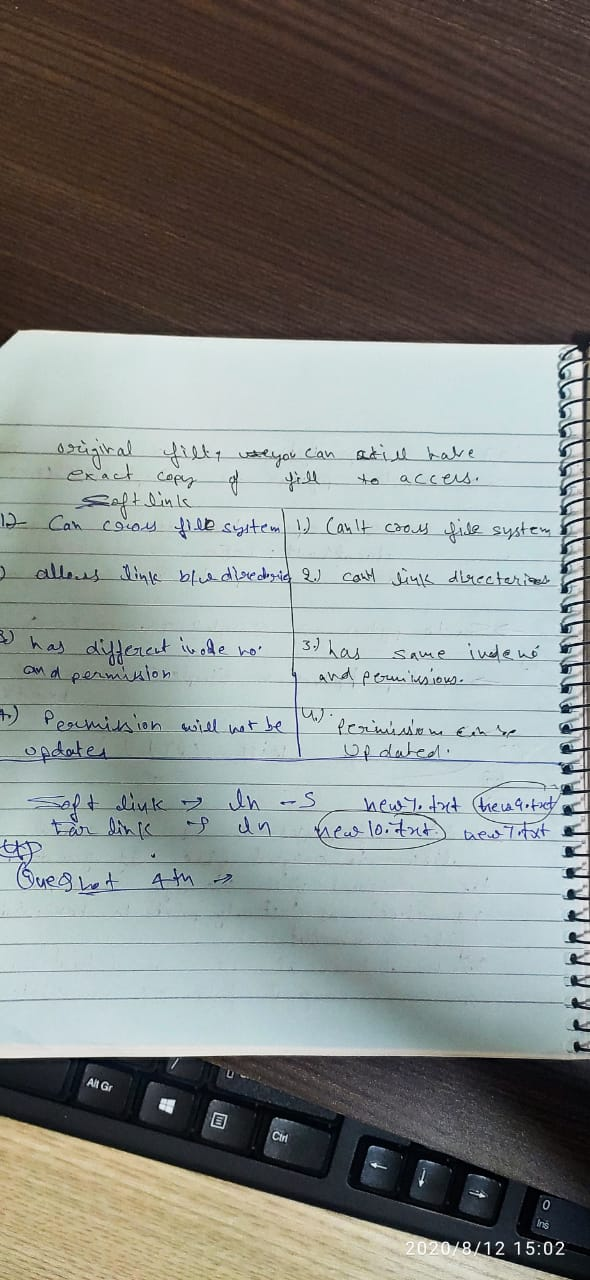 original file, you can still have
exact copy of fill to access.
Soft link
1) Can cross file system 1.) Can't cross file system
) allows link b/w directories 2.) can't link directories
3.) has different inode no. 3.) has same inode no
and permission and permissions.
4.) Permission will not be 4.) Permissions can be
updates Updated.
Soft link → ln -s new7.txt new9.txt
link → ln new10.txt new7.txt
Ques 4th →
Alt Gr
Ctrl
0
Ins
2020/8/12 15:02